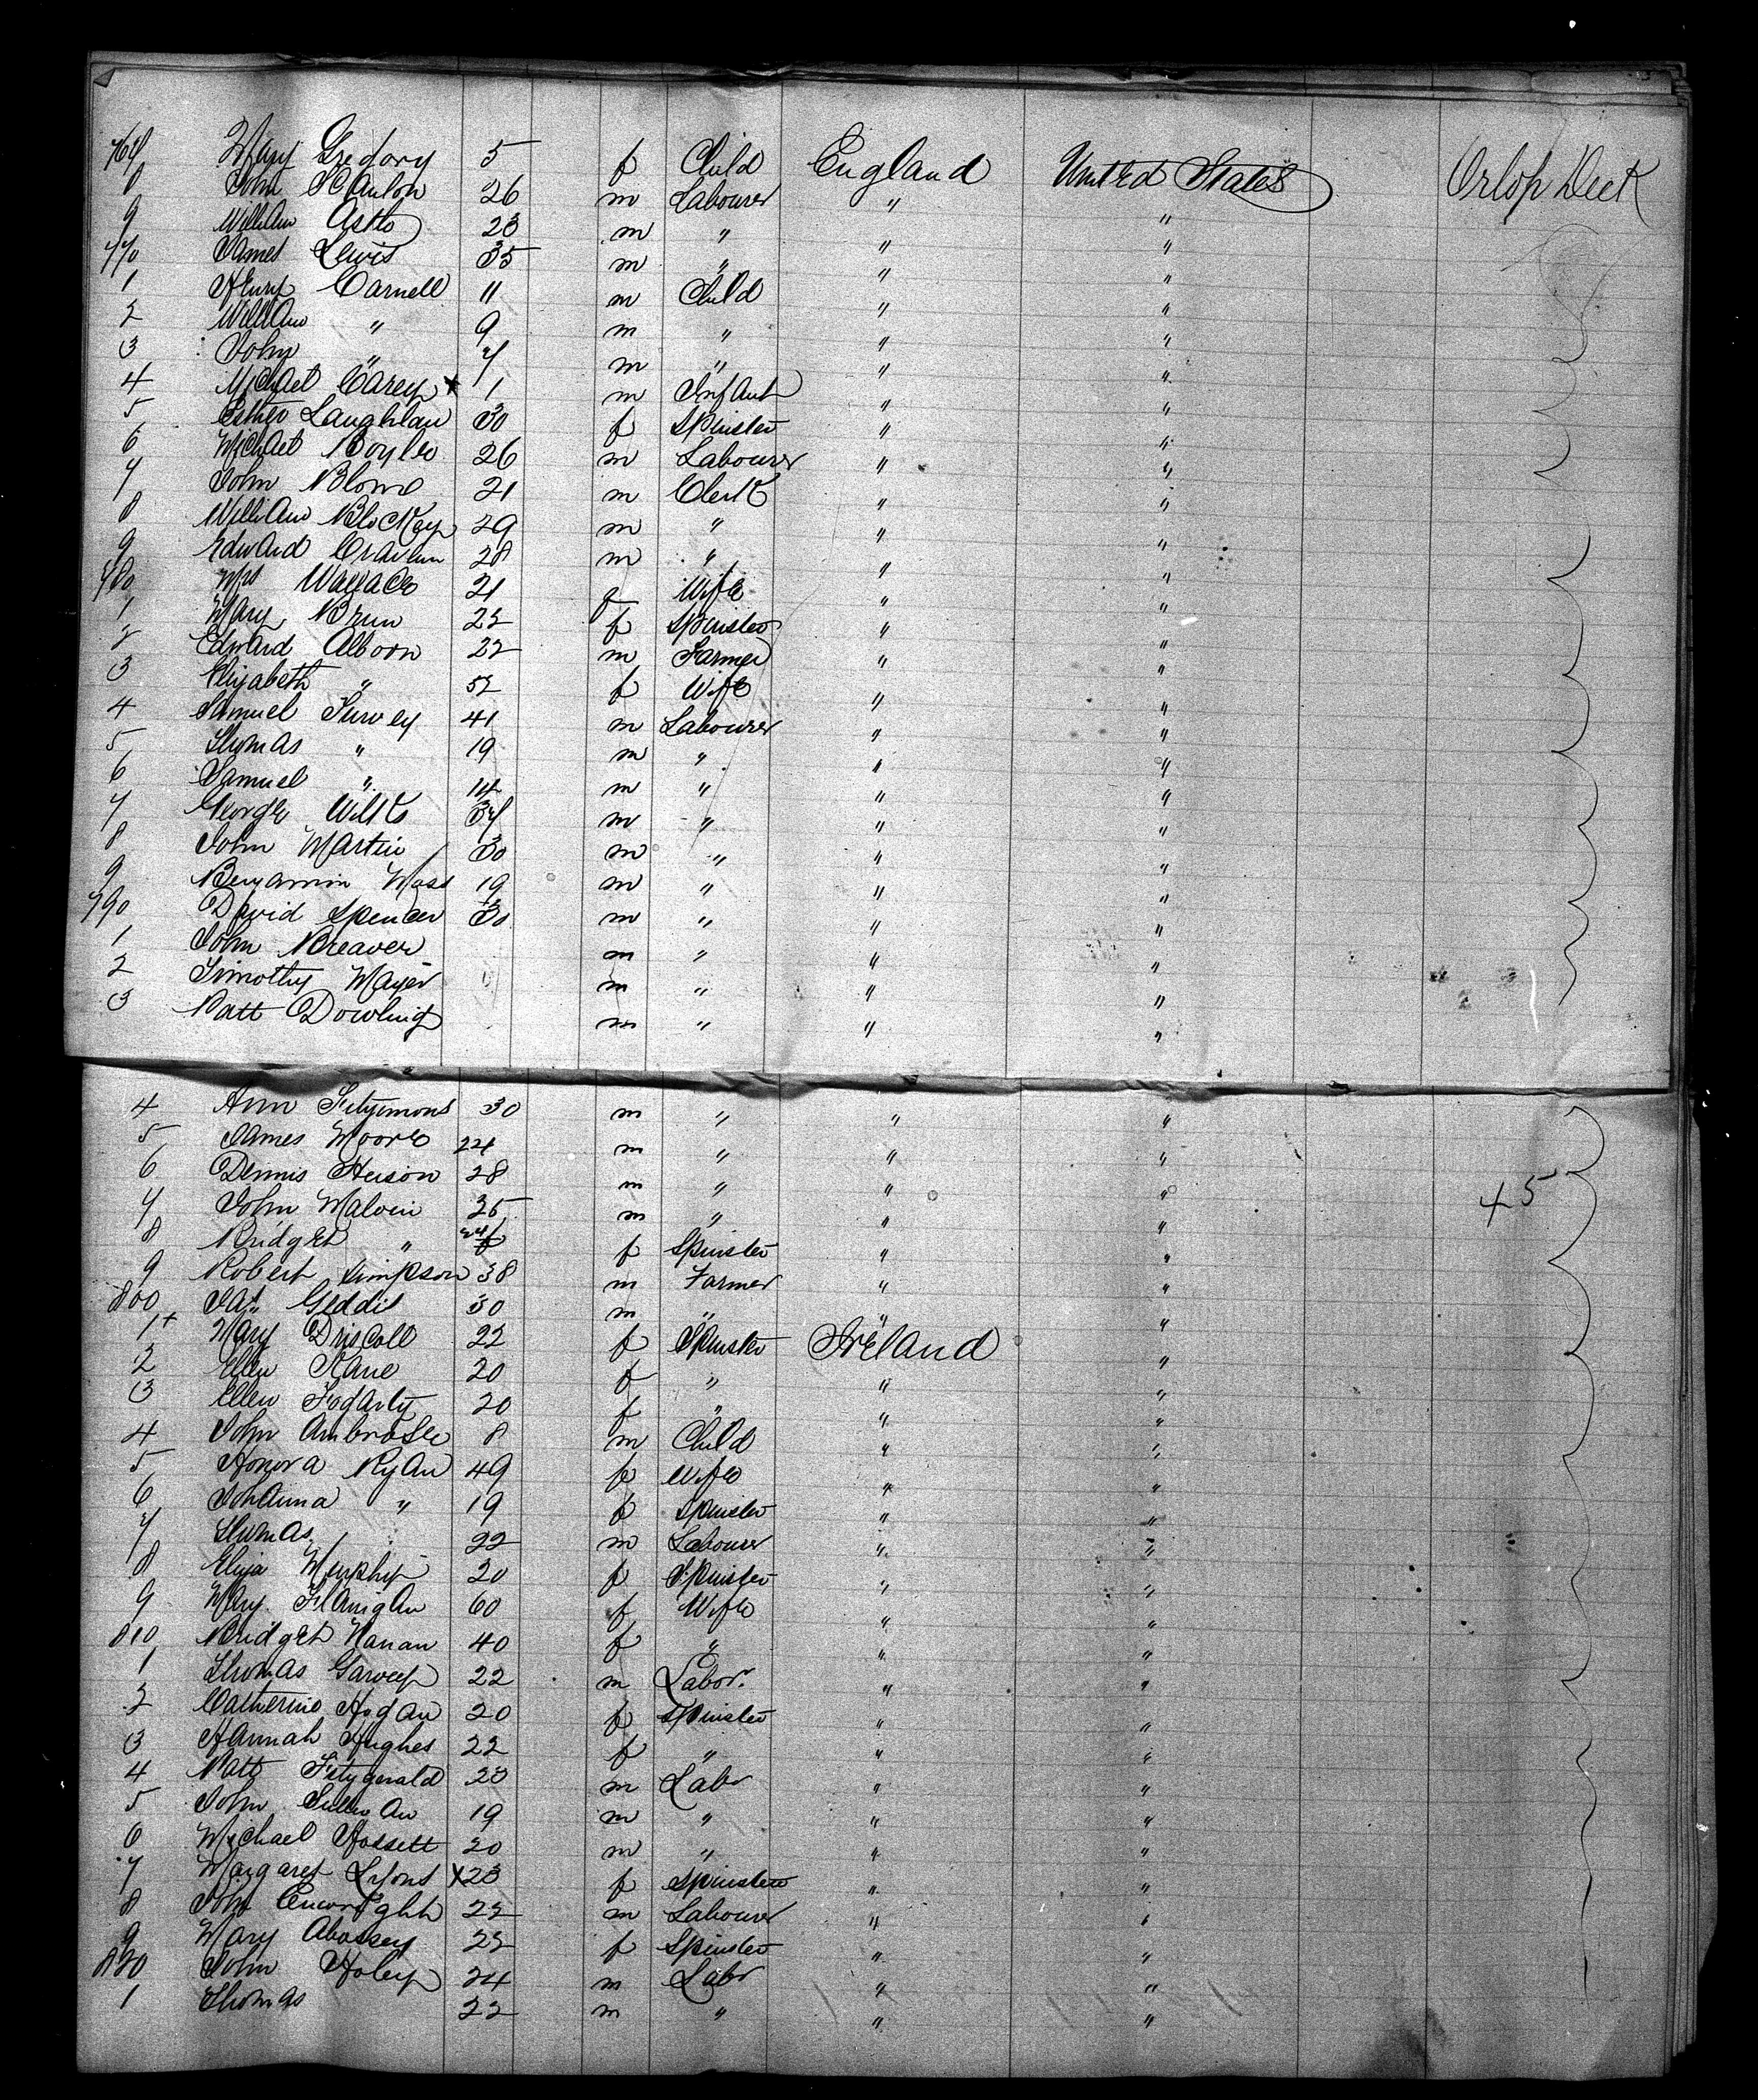 767 Mary Gregory 5 f Child England United States Orlop Deck
8 John Scanlon 26 m Labourer " "
9 William Astle 23 m " " "
770 James Lewis 35 m " " "
1 Henry Carnell 11 m Child " "
2 William " 9 m " " "
3 John " 7 m " " "
4 Michael Carey x 1 m Infant " "
5 Esther Laughlan 30 f Spinster " "
6 Michael Boyle 26 m Labourer " "
7 John Blome 21 m Clerk " "
8 William Blockey 29 m " " "
9 Edward Craven 28 m " " "
780 Mrs Wallace 21 f Wife " "
1 Mary Brun 22 f Spinster " "
2 Edward Alboon 22 m Farmer " "
3 Elizabeth " 52 f Wife " "
4 Samuel Turvey 41 m Labourer " "
5 Thomas " 19 m " " "
6 Samuel " 14 m " " "
7 George Wilk 37 m " " "
8 John Martin 30 m " " "
9 Benjamin Wass 19 m " " "
790 David Spencer 30 m " " "
1 John Breaver m " " "
2 Timothy Mayer m " " "
3 Patt Dowling m " " "
4 Ann Fitzimons 30 m " " "
5 James Moore 24 m " " "
6 Dennis Heison 28 m " " "
7 John Malvin 25 m " " " 45
8 Bridget " f Spinster " "
9 Robert Simpson 38 m Farmer " "
800 Jas Geddis 30 m " " "
1+ Mary Driscoll 22 f Spinster Ireland "
2 Ellen Kane 20 f " " "
3 Ellen Fogarty 20 f " " "
4 John Ambrose 8 m Child " "
5 Honora Ryan 49 f Wife " "
6 Johanna " 19 f Spinster " "
7 Thomas 22 m Labourer " "
8 Eliza Murphy 20 f Spinster " "
9 Mary Flanigan 60 f Wife " "
810 Bridget Hanan 40 f " " "
1 Thomas Garvey 22 m Labor. " "
2 Catherine Hogan 20 f Spinster " "
3 Hannah Hughes 22 f " " "
4 Patt Fitzgerald 23 m Labr " "
5 John Sullivan 19 m " " "
6 Michael Hossett 20 m " " "
7 Margaret Lyons x 23 f Spinster " "
8 John 22 m Labourer " "
9 Mary Abossey 22 f Spinster " "
820 John Holey 24 m Labr " "
1 Thomas 22 m " " "